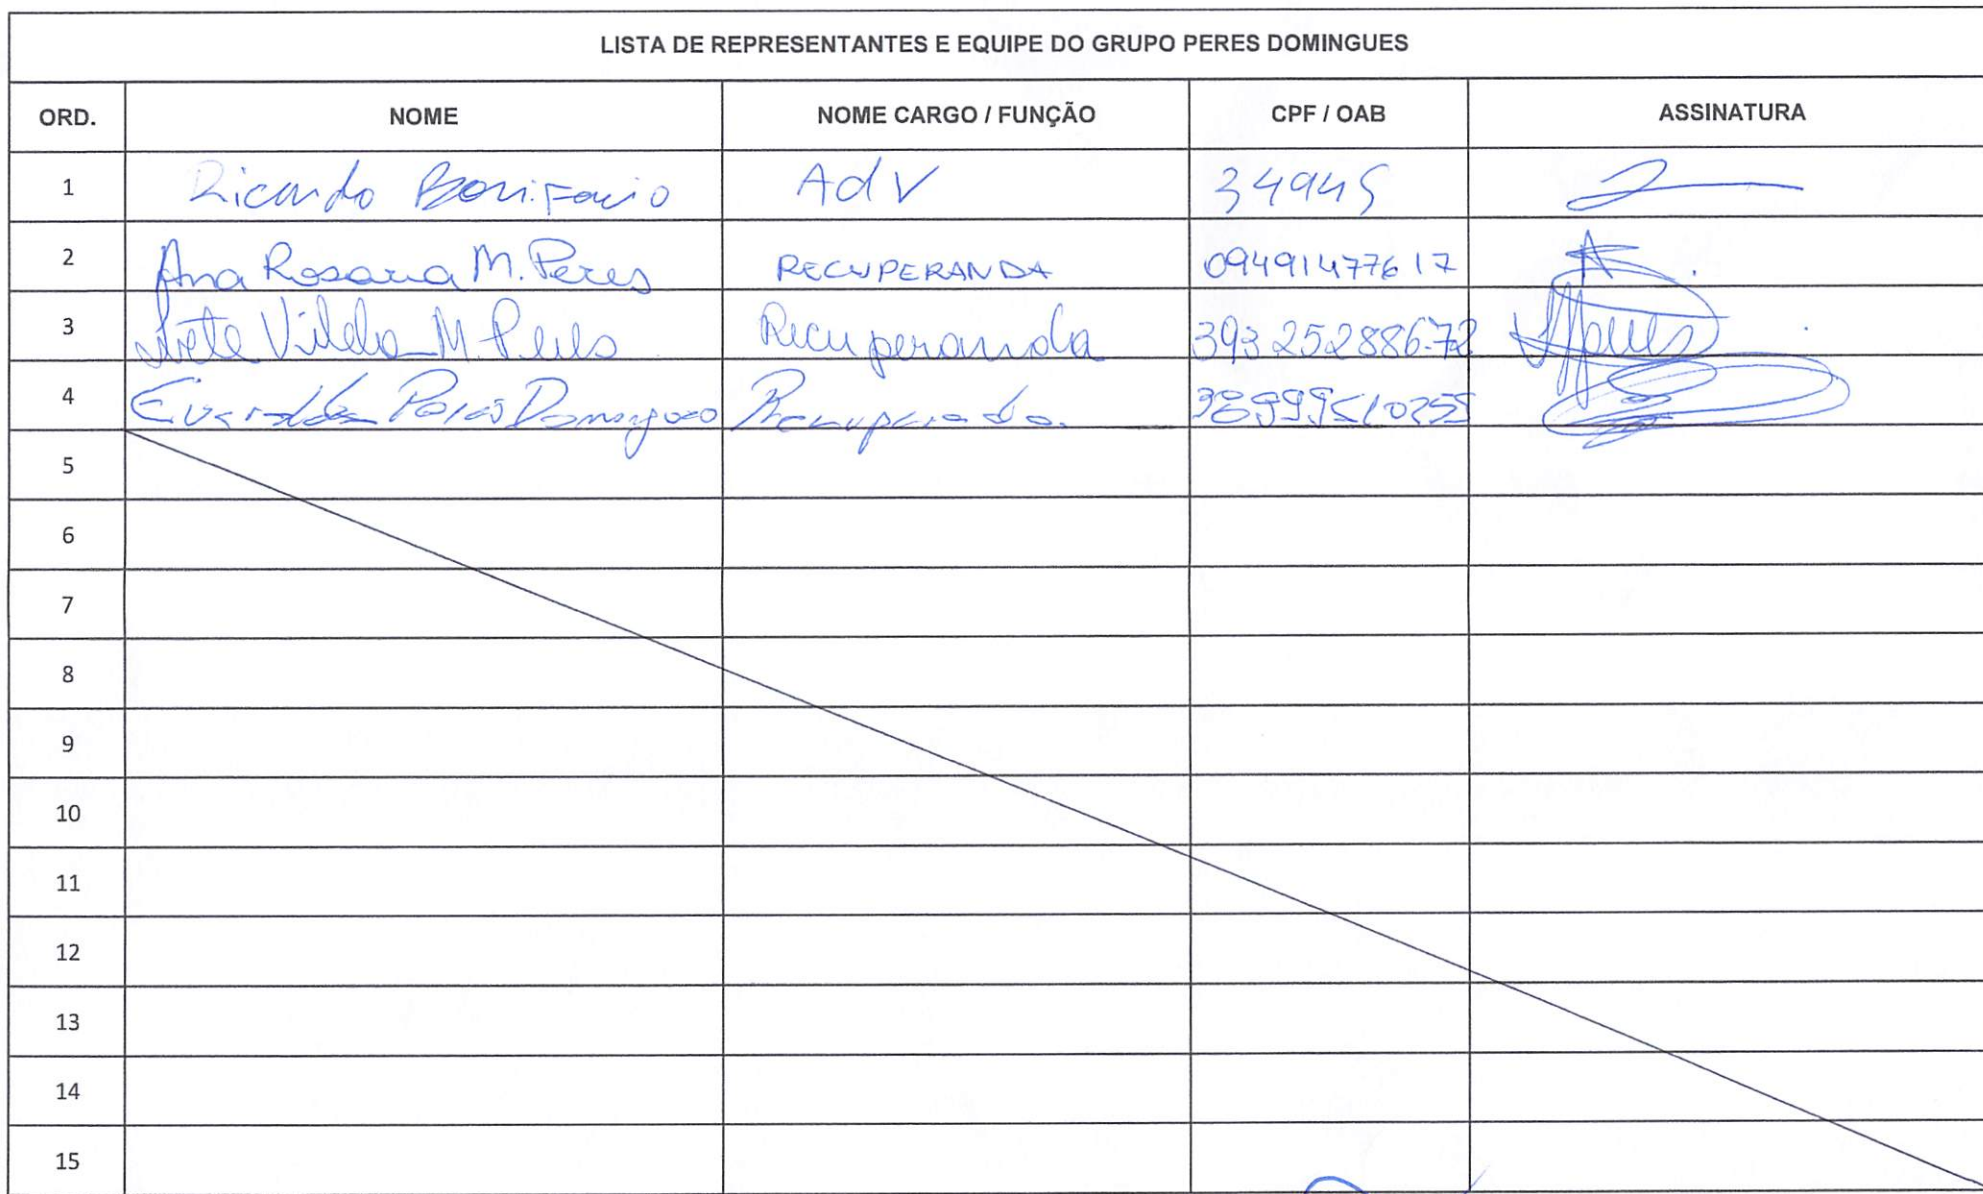 LISTA DE REPRESENTANTES E EQUIPE DO GRUPO PERES DOMINGUES
ORD. NOME NOME CARGO / FUNÇÃO CPF / OAB ASSINATURA
1 Ricardo Bonifacio Adv 34945
2 Ana Rosaria M. Peres RECUPERANDA 09491477617
3 Vilela M. Peres Recuperanda 393252886-72
4 Peres Domingues
5
6
7
8
9
10
11
12
13
14
15